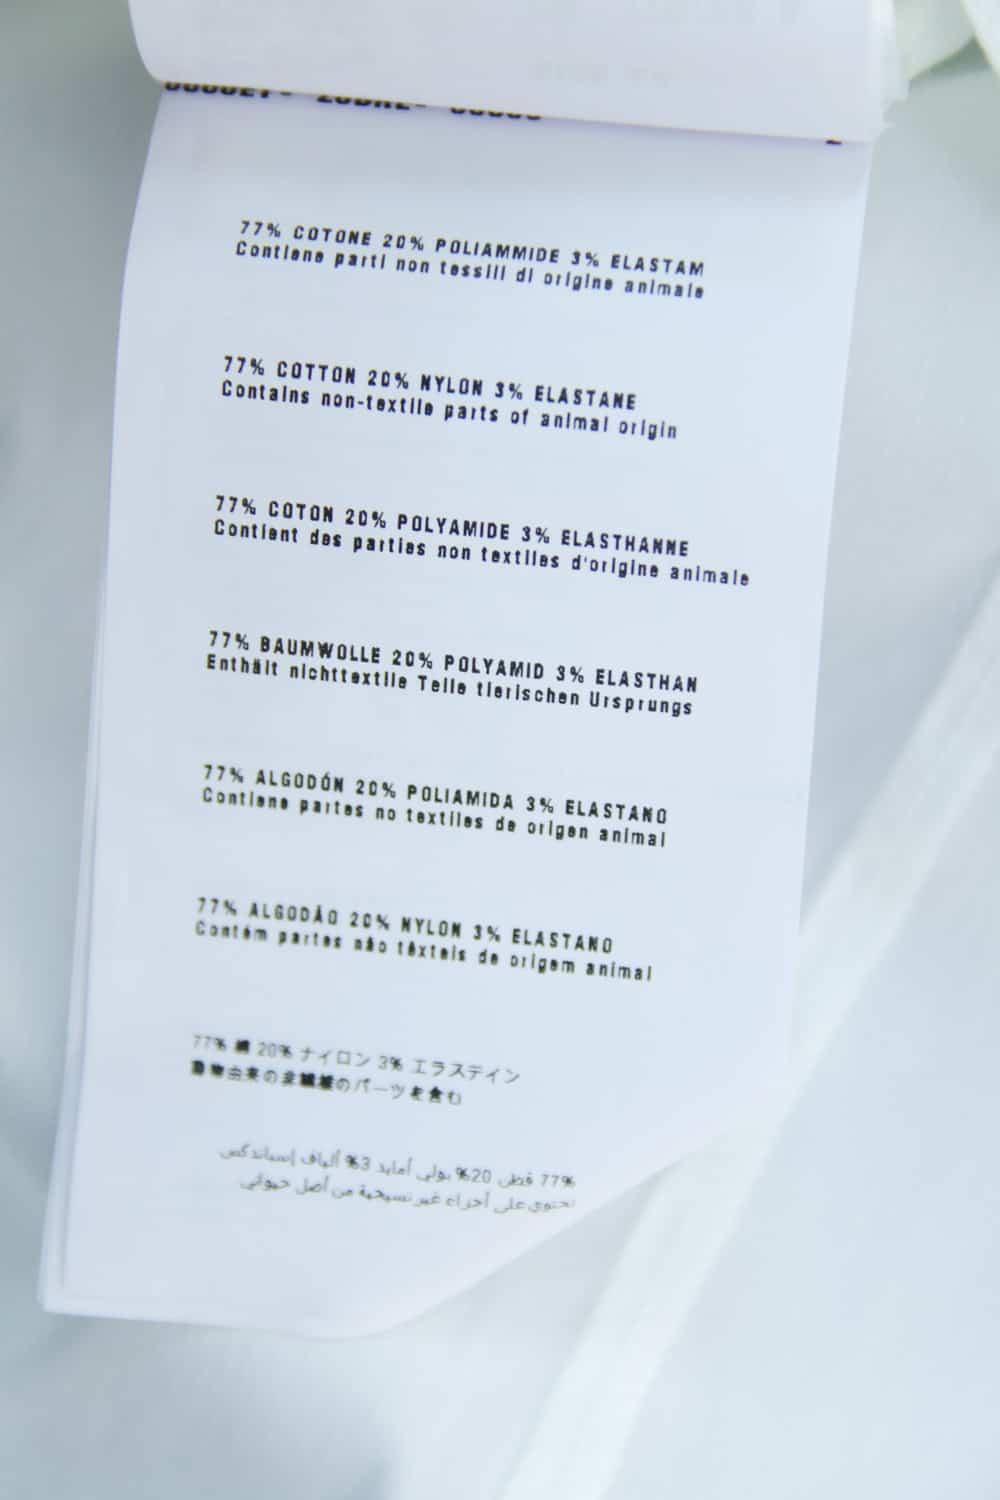 77% COTONE 20% POLIAMMIDE 3% ELASTAM
Contiene parti non tessili di origine animale
77% COTTON 20% NYLON 3% ELASTANE
Contains non-textile parts of animal origin
77% COTON 20% POLYAMIDE 3% ELASTHANNE
Contient des parties non textiles d'origine animale
77% BAUMWOLLE 20% POLYAMID 3% ELASTHAN
Enthält nichttextile Teile tierischen Ursprungs
77% ALGODÓN 20% POLIAMIDA 3% ELASTANO
Contiene partes no textiles de origen animal
77% ALGODÃO 20% NYLON 3% ELASTANO
Contém partes não têxteis de origem animal
77% 綿 20% ナイロン 3% エラステイン
動物由来の非繊維のパーツを含む
77% قطن 20% بولي أمايد 3% ألياف إسباندكس
تحتوي على أجزاء غير نسيجية من أصل حيواني